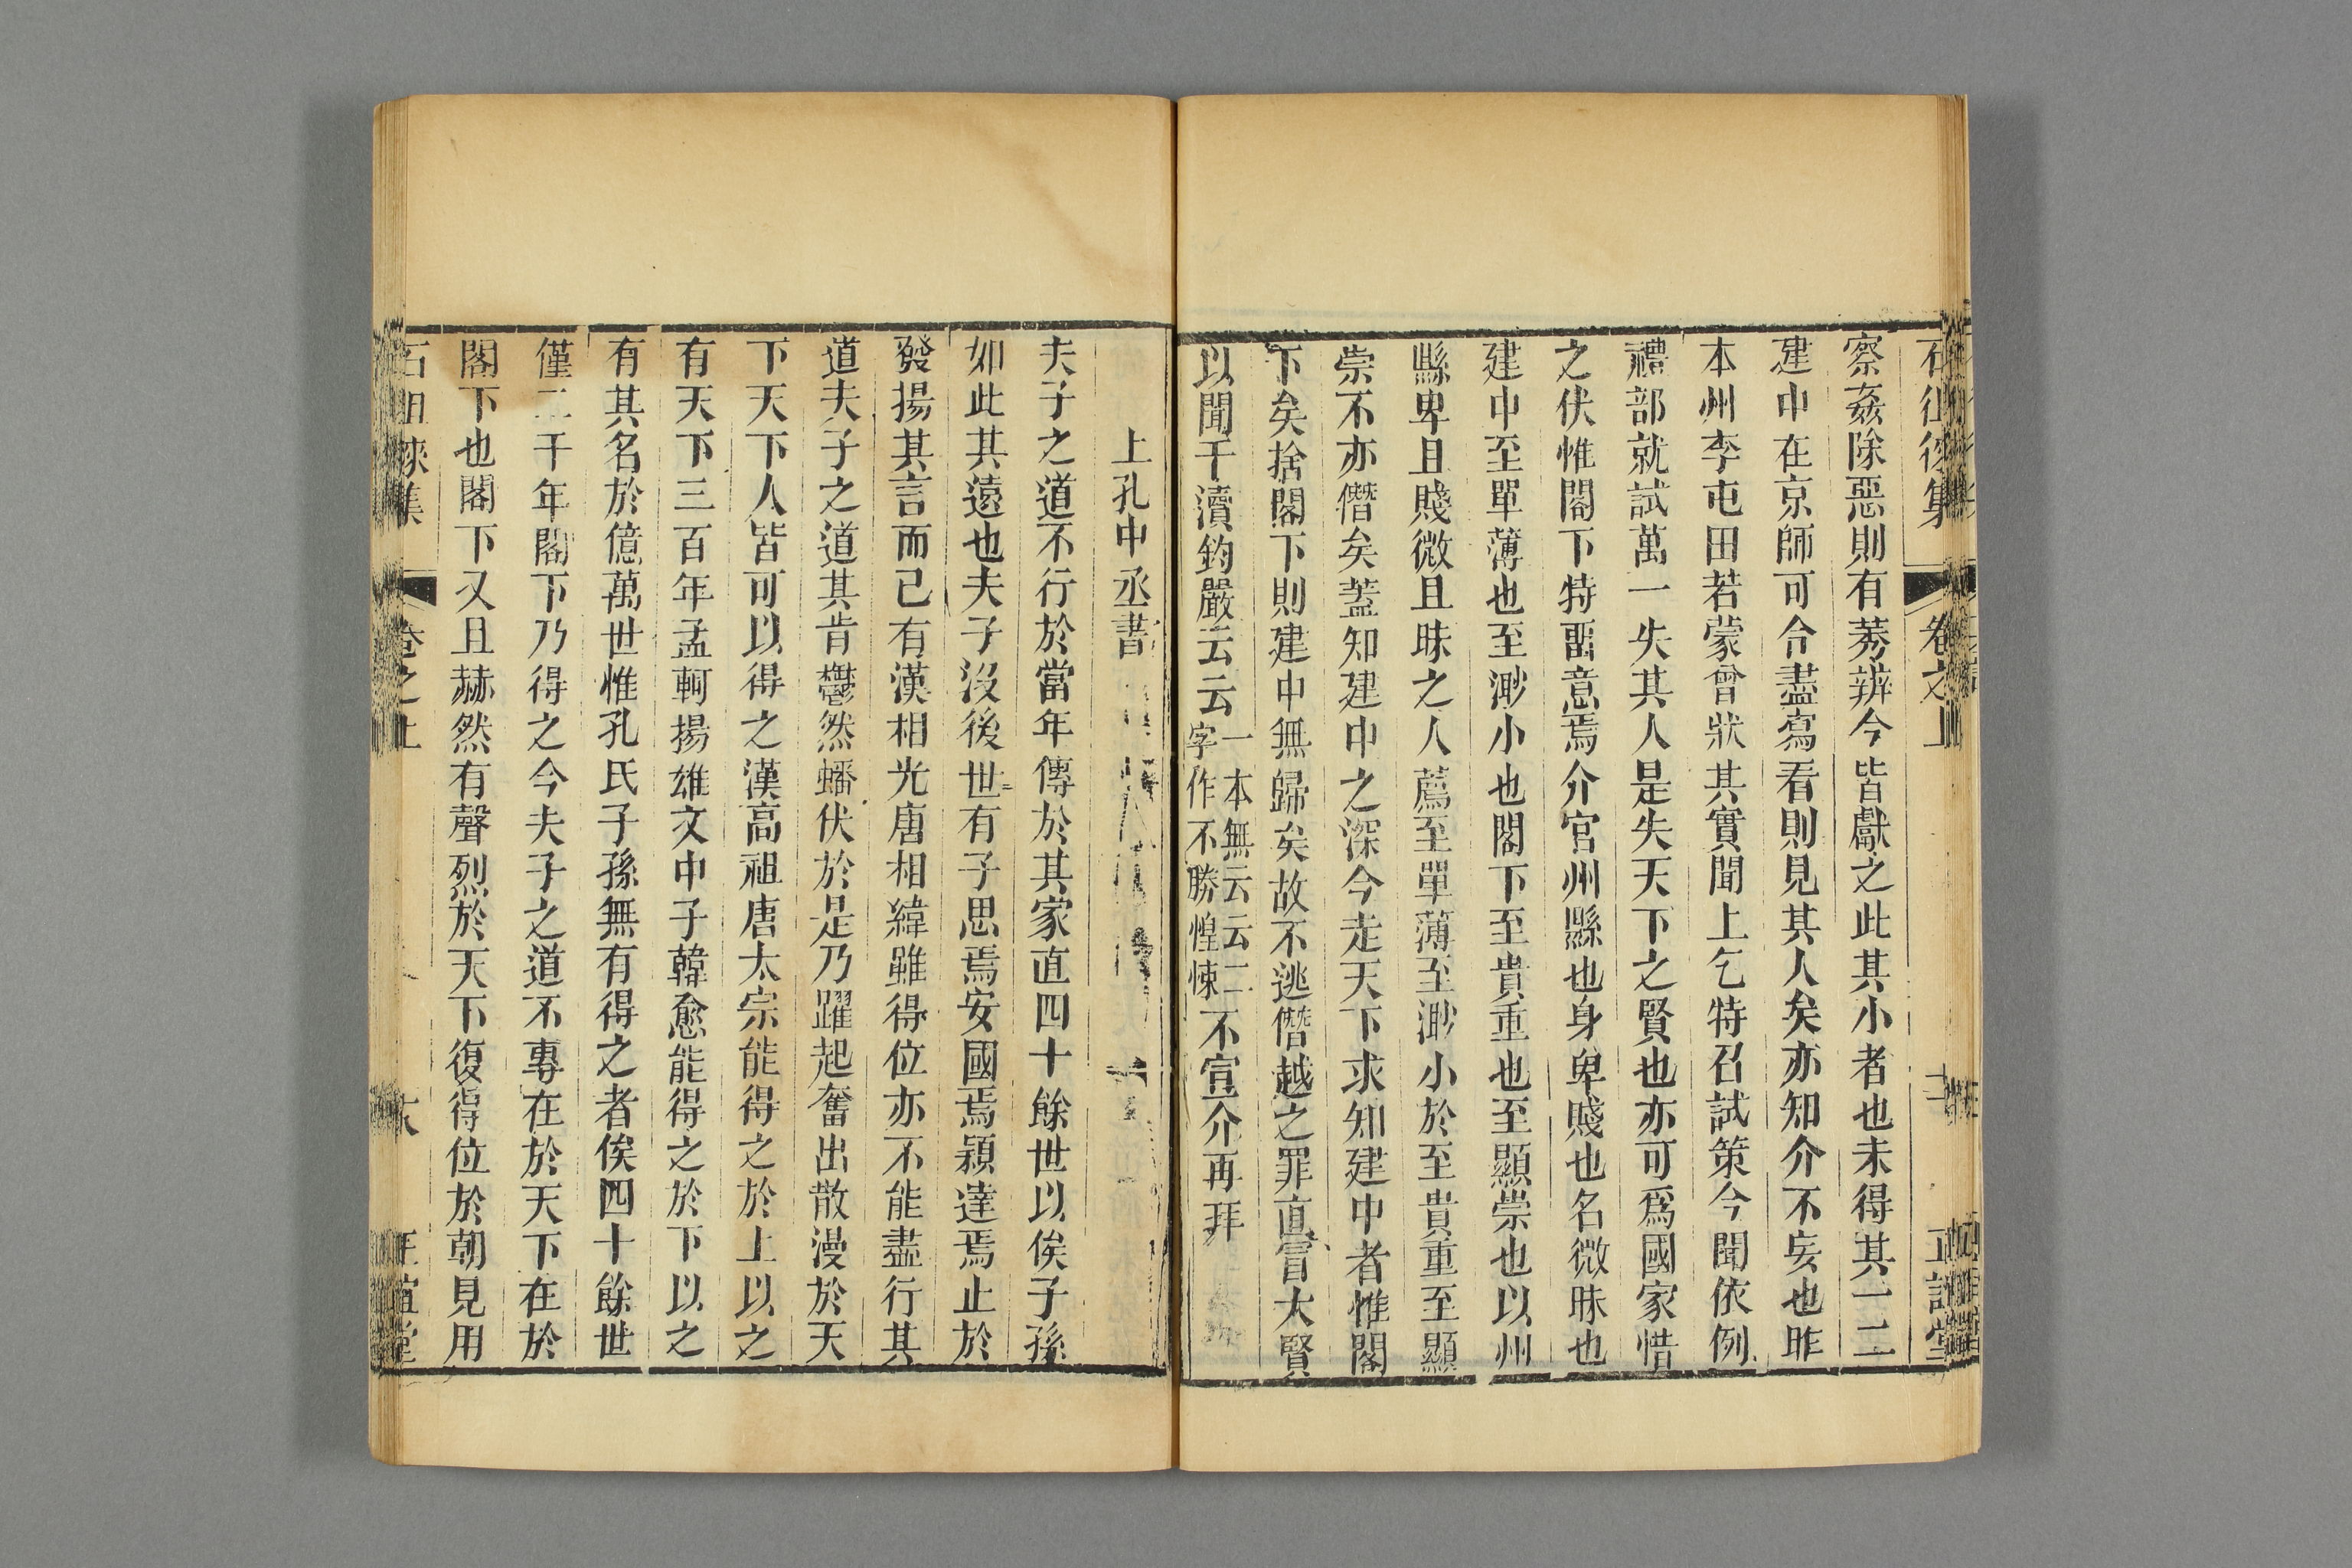 石徂徠集 卷之上 二 正誼堂
察姦除惡則有莠辨今皆獻之此其小者也未得其一二
建中在京師可合盡寫看則見其人矣亦知介不妄也昨
本州李屯田若蒙曾狀其實聞上乞特召試策今聞依例
禮部就試萬一失其人是失天下之賢也亦可爲國家惜
之伏惟閣下特畱意焉介官州縣也身卑賤也名微昧也
建中至單薄也至渺小也閣下至貴重也至顯崇也以州
縣卑且賤微且昧之人薦至單薄至渺小於至貴重至顯
崇不亦僭矣蓋知建中之深今走天下求知建中者惟閣
下矣捨閣下則建中無歸矣故不逃僭越之罪直冒大賢
以聞干瀆鈞嚴云云一本無云云二字作不勝惶悚不宣介再拜
上孔中丞書
夫子之道不行於當年傳於其家直四十餘世以俟子孫
如此其遠也夫子沒後世有子思焉安國焉穎達焉止於
發揚其言而已有漢相光唐相緯雖得位亦不能盡行其
道夫子之道其肯鬱然蟠伏於是乃躍起奮出散漫於天
下天下人皆可以得之漢高祖唐太宗能得之於上以之
有天下三百年孟軻揚雄文中子韓愈能得之於下以之
有其名於億萬世惟孔氏子孫無有得之者俟四十餘世
僅二千年閣下乃得之今夫子之道不專在於天下在於
閣下也閣下又且赫然有聲烈於天下復得位於朝見用
石徂徠集 卷之上 正誼堂